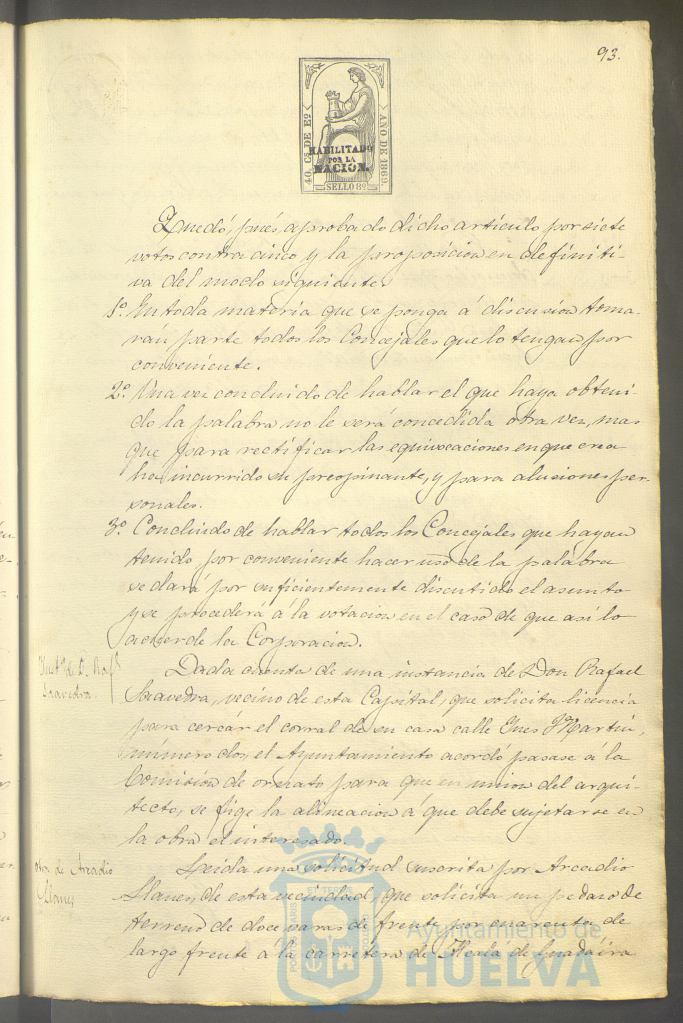 93.
40. Cs DE Eº
AÑO DE 1869.
HABILITADO
POR LA
NACION.
SELLO 8º
Quedó, pués, aprobado dicho artículo por siete
votos contra cinco y la proposicion en definiti-
va del modo siguiente.
1º. En toda materia que se ponga á discusion toma-
rán parte todos los Concejales que lo tengan por
conveniente.
2º. Una vez concluido de hablar el que haya obteni-
do la palabra no le será concedida otra vez, mas
que para rectificar las equivocaciones en que crea
ha incurrido su preopinante, y para alusiones per-
sonales.
3º. Concluido de hablar todos los Concejales que hayan
tenido por conveniente hacer uso de la palabra
se dará por suficientemente discutido el asunto
y se procederá á la votacion en el caso de que así lo
acuerde la Corporacion.
Instª de D. Rafl
Saavedra.
Dada cuenta de una instancia de Don Rafael
Saavedra, vecino de esta Capital, que solicita licencia
para cercar el corral de su casa calle Ines Martin,
número dos, el Ayuntamiento acordó pasase á la
Comision de ornato para que en union del arqui-
tecto, se fige la alineacion á que debe sujetarse en
la obra el interesado.
otra de Arcadio
Llanes
Leida una solicitud suscrita por Arcadio
Llanes, de esta vecindad, que solicita un pedazo de
terreno de doce varas de frente por cuarenta de
largo frente á la carretera de Alcalá de Guadaira
Ayuntamiento de
HUELVA